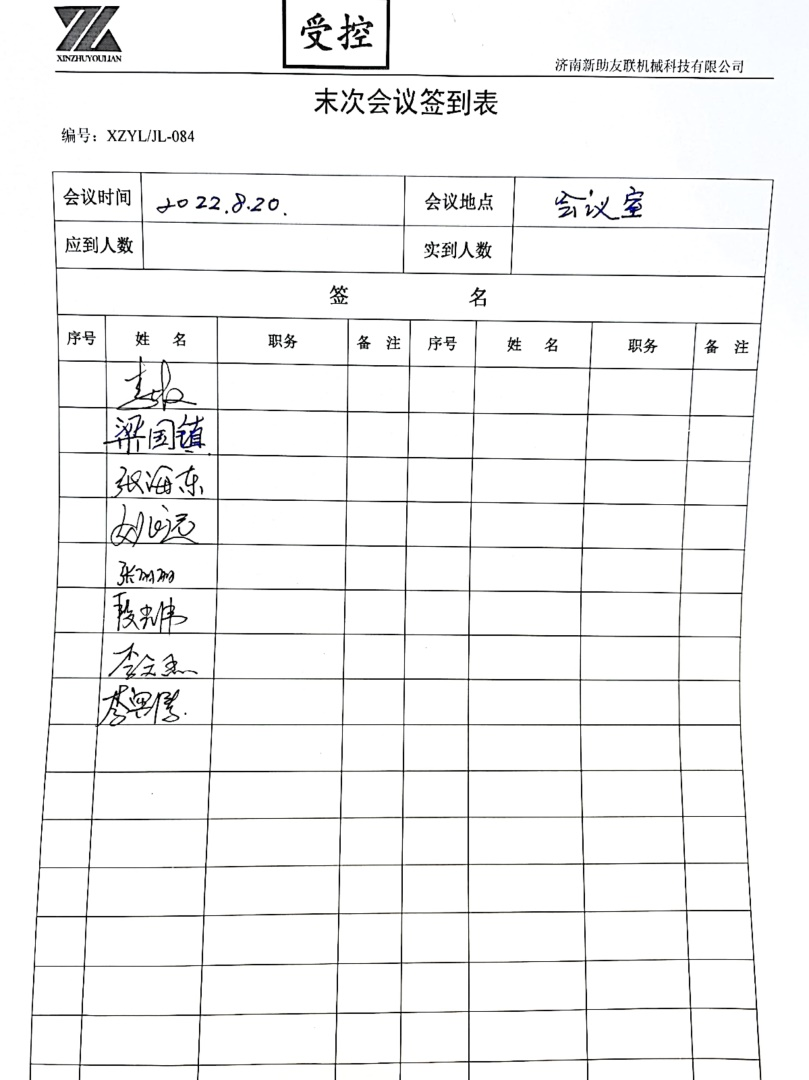 受控
XINZHUYOULIAN
济南新助友联机械科技有限公司
末次会议签到表
编号：XZYL/JL-084
会议时间 2022.8.20. 会议地点 会议室
应到人数 实到人数
签 名
序号 姓 名 职务 备 注 序号 姓 名 职务 备 注
梁国镇
张海东
张丽丽
段光伟
李文杰